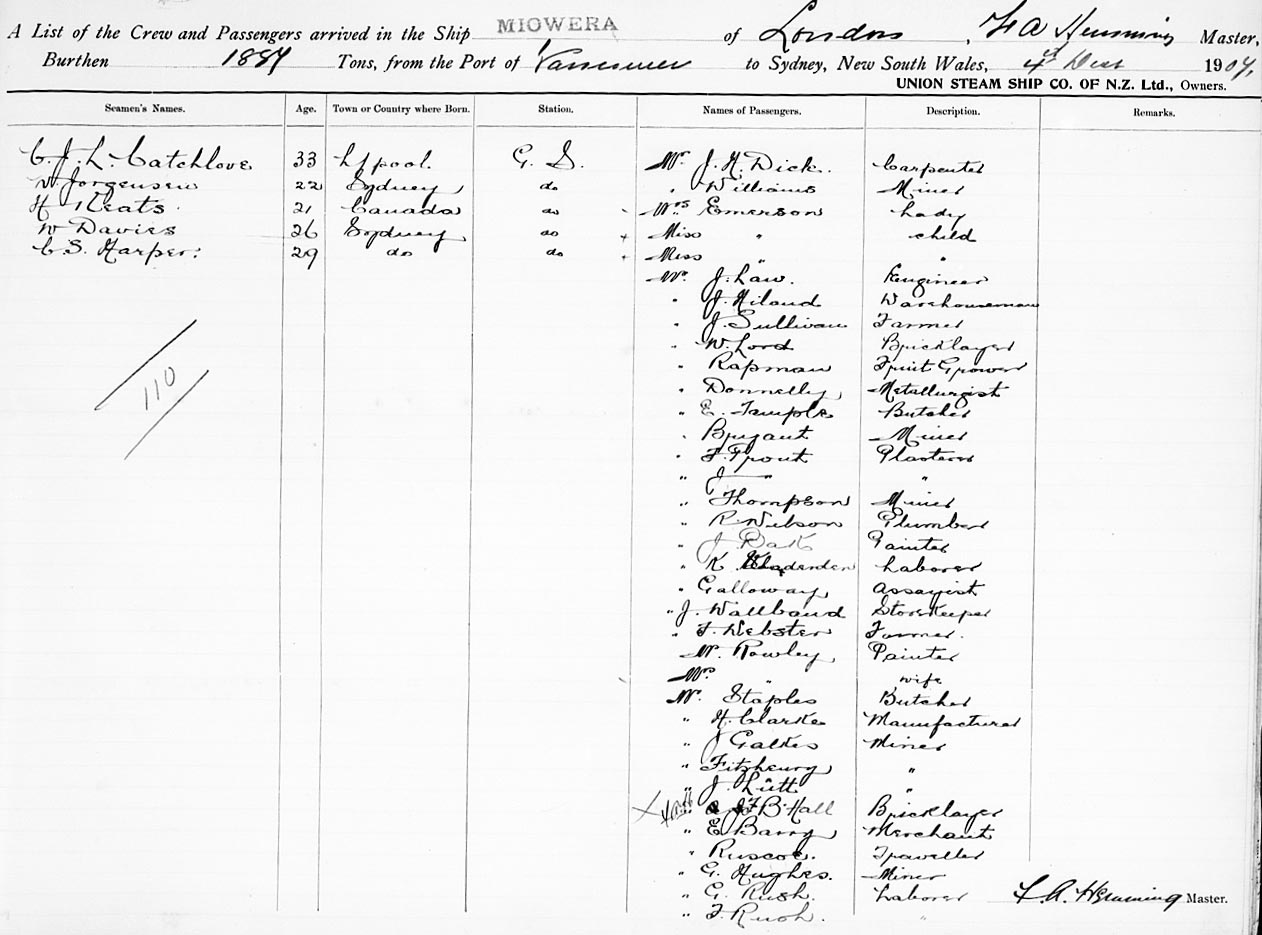 A List of the Crew and Passengers arrived in the Ship MIOWERA of London, F A Hemming Master,
Burthen 1887 Tons, from the Port of Vancouver to Sydney, New South Wales, 4th Decr 1904,
UNION STEAM SHIP CO. OF N.Z. Ltd., Owners.
Seamen's Names. Age. Town or Country where Born. Station. Names of Passengers. Description. Remarks.
C. J. L. Catchlove 33 L'pool. G. S. Mr. J. H. Dick. Carpenter
W. Jorgensen 22 Sydney do " Williams Miner
H Keats 21 Canada do Mrs Emerson Lady
W Davies 26 Sydney do + Miss " child
C. S. Harper 29 do do + Miss " "
Mr. J. Law. Engineer
" J. Hiland Warehouseman
" J. Sullivan Farmer
" W. Lord Bricklayer
" Rapman Fruit Grower
" Donnelly Metallurgist
" E. Temple Butcher
" Bryant Miner
" F. Trout Plasterer
" J " "
" Thompson Miner
" R. Wilson Plumber
" J Painter
" K Laborer
" Galloway Assayist
" J. Wallbaud Storekeeper
" F. Webster Farmer.
Mr. Rowley Painter
Mrs. " wife
Mr. Staples Butcher
" H. Clarke Manufacturer
" J Galkes Miner
" Fitzhenry "
" J. Lutt "
110
X " F B Hall Bricklayer
" E Barry Merchant
" Ruscoe. Traveller
" G. Hughes. Miner
" G. Rush. Laborer F. A. Hemming Master.
" F. Rush. "